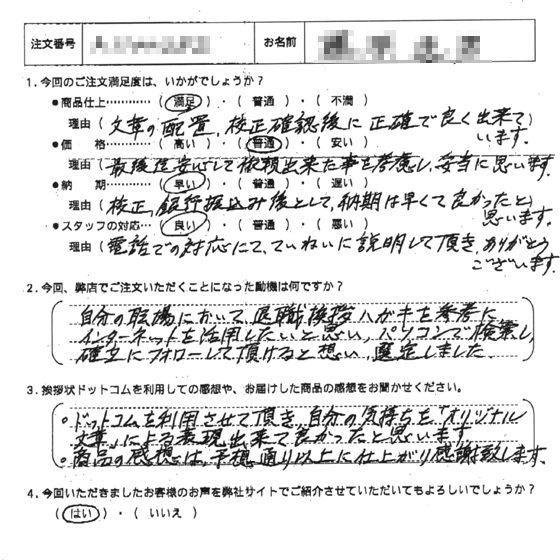 注文番号 お名前
1．今回のご注文満足度は、いかがでしょうか？
●商品仕上…………（ 満足 ）・（ 普通 ）・（ 不満 ）
理由（文章の配置、校正確認後に正確で良く出来て
います。
●価　格…………（ 高い ）・（ 普通 ）・（ 安い ）
理由（最後迄安心して依頼出来た事を考慮し、妥当に思います。
●納　期…………（ 早い ）・（ 普通 ）・（ 遅い ）
理由（校正、銀行振込み後として、納期は早くて良かったと
思います。
●スタッフの対応…（ 良い ）・（ 普通 ）・（ 悪い ）
理由（電話での対応にて、ていねいに説明して頂き、ありがとう
ございます。
2．今回、弊店でご注文いただくことになった動機は何ですか？
自分の職場において、退職挨拶ハガキを参考に
インターネットを活用したいと思い、パソコンで検索し、
確立にフォローして頂けると想い、選定しました。
3．挨拶状ドットコムを利用しての感想や、お届けした商品の感想をお聞かせください。
○ドットコムを利用させて頂き、自分の気持ちを「オリジナル
文章」による表現出来て良かったと思います
○商品の感想は、予想通り以上に仕上がり感謝致します。
4．今回いただきましたお客様のお声を弊社サイトでご紹介させていただいてもよろしいでしょうか？
（ はい ）・（ いいえ ）